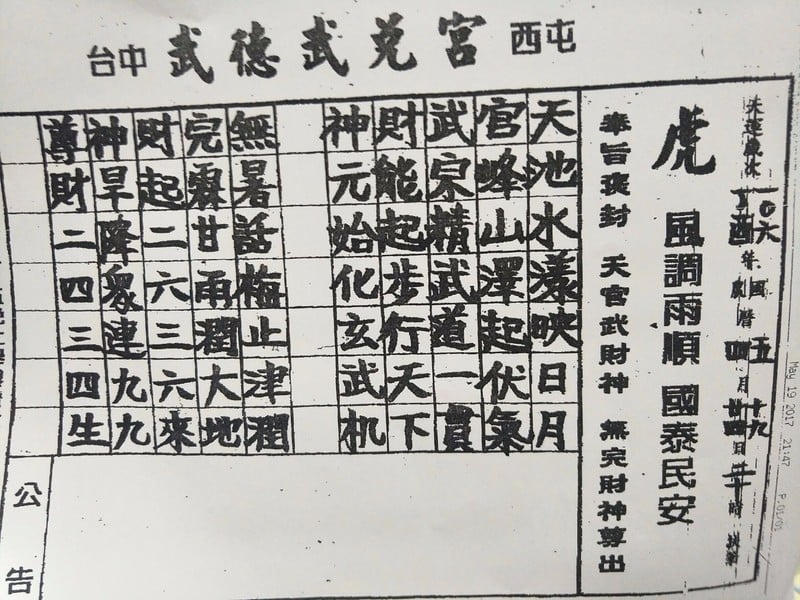 台中 武德武兌宮 西屯
一〇六
國曆
五
十九
丁酉年
四月廿四日
虎 風調雨順 國泰民安
奉旨褒封 天官武財神 無完財神尊出
天池水漾映日月
官峰山澤起伏氣
武宗精武道一貫
財能起步行天下
神元始化玄武机
無暑話梅止津潤
完霖甘雨潤大地
財起二六三六來
神旱降眾連九九
尊財二四三四生
公告
May 19 2017 21:47 P.01/01